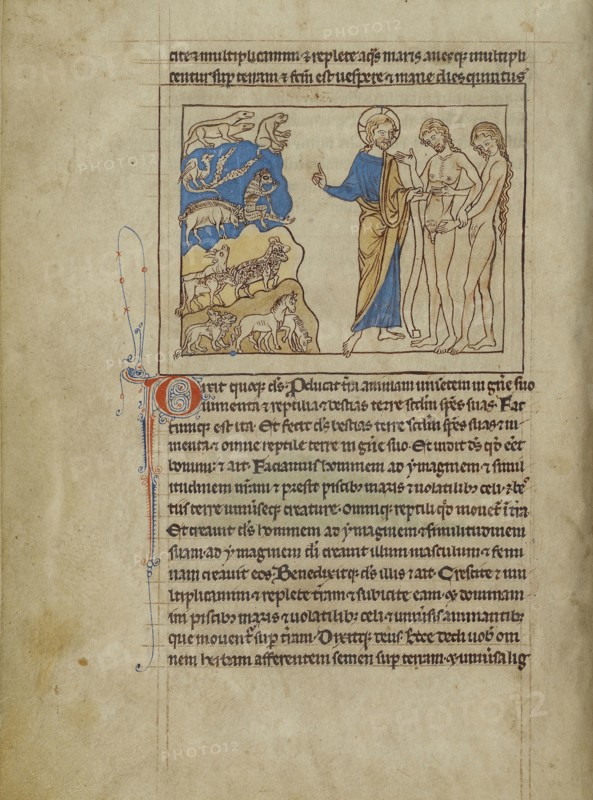 cite & multiplicamini & replete aq̄s maris auesq; multipli
centur sup̄ terram & fc̄m est uespere & mane dies quintus
Dixit quoq; ds̄ Producat tr̄a animam uiuentem in gn̄e suo
iumenta & reptilia & bestias terre scd̄m sp̄es suas. Fac
tumq; est ita. Et fecit ds̄ bestias terre scd̄m sp̄es suas & iu
menta & omne reptile terre in gn̄e suo. Et uidit ds̄ qd̄ eēt
bonum & ait. Faciamus hominem ad ymaginem & simil
itudinem nr̄am & presit piscib; maris & uolatilib; celi & be
tiis terre uniuseq; creature. Omniq; reptili qd̄ mouet̄ ī tr̄a
Et creauit ds̄ hominem ad ymaginem & similitudinem
suam. ad ymaginem di creauit illum masculum & femi
nam creauit eos. Benedixitq; ds̄ illis & ait. Crescite & mul
tiplicamini & replete tr̄am & subicite eam. & dominam
ini piscib; maris & uolatilib; celi & uniūsis animantib;
que mouent̄ sup̄ tr̄am. Dixitq; deus. Ecce dedi uob̄ om
nem herbam afferentem semen sup̄ terram. & uniūsa lig
PHOTO12